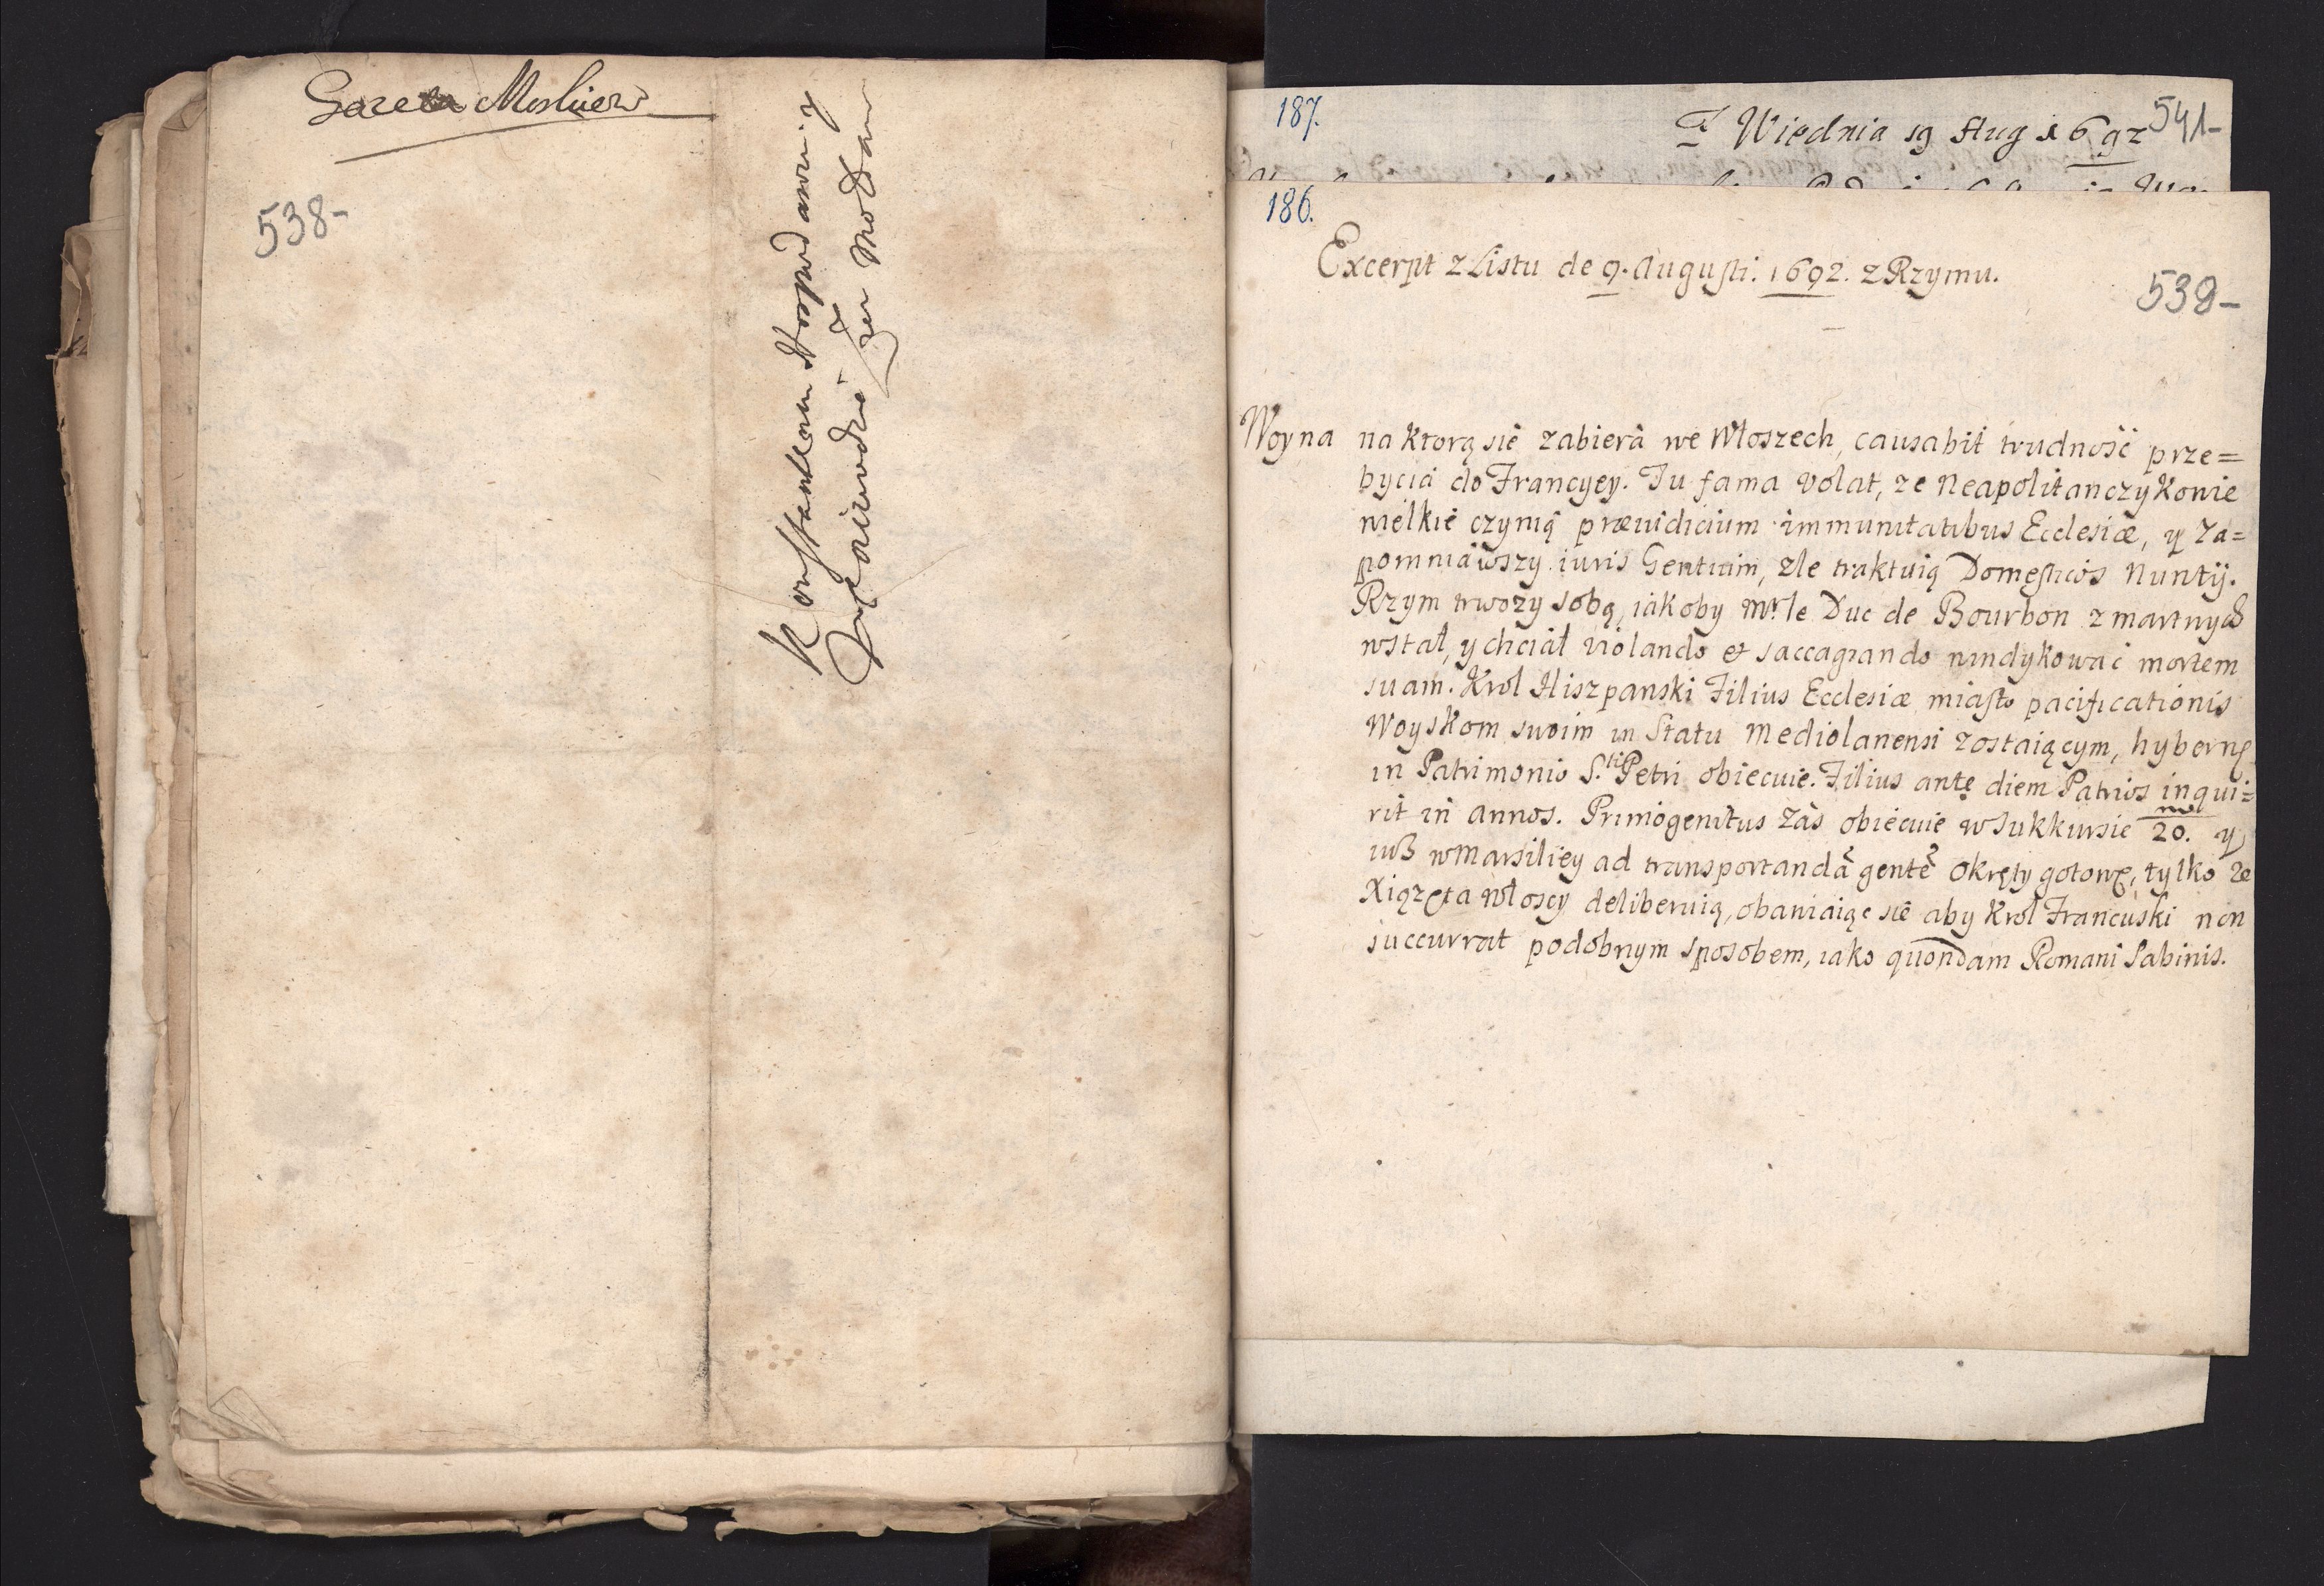 Gazeta Moskiew
538-
Konstantem Hospodarem y
Woiewodzie Ziem Moldaw
187.
Z Wiednia 19 Aug 1692
541-
186.
Excerpt z Listu de 9. Augusti. 1692. z Rzymu.
539-
Woyna na ktorą się zabiera we Włoszech, causabit trudność prze=
bycia do Francyey. Tu fama volat, ze Neapolitanczykowie
wielkie czynią præiudicium immunitatibus Ecclesiæ, y za=
pomniawszy iuris Gentium, zle traktuią Domesticos Nuntij.
Rzym trwozy sobą, iakoby Mr. le Duc de Bourbon z martwych
wstał, y chciał violando et saccagiando windykować mortem
suam. Krol Hiszpanski Filius Ecclesiæ miasto pacificationis
Woyskom swoim in Statu Mediolanensi zostaiącym, hybernę
in Patrimonio S.ti Petri obiecuie. Filius ante diem Patrios inqui=
rit in annos. Primogenitus zas obiecuie w Sukkursie m/20. y
iuß w Marsiliey ad transportandã gentẽ okręty gotowe, tylko ze
Xiązęta Włoscy deliberuią, obawiaiąc się aby Krol Francuski non
succurrat podobnym sposobem, iako quondam Romani Sabinis.